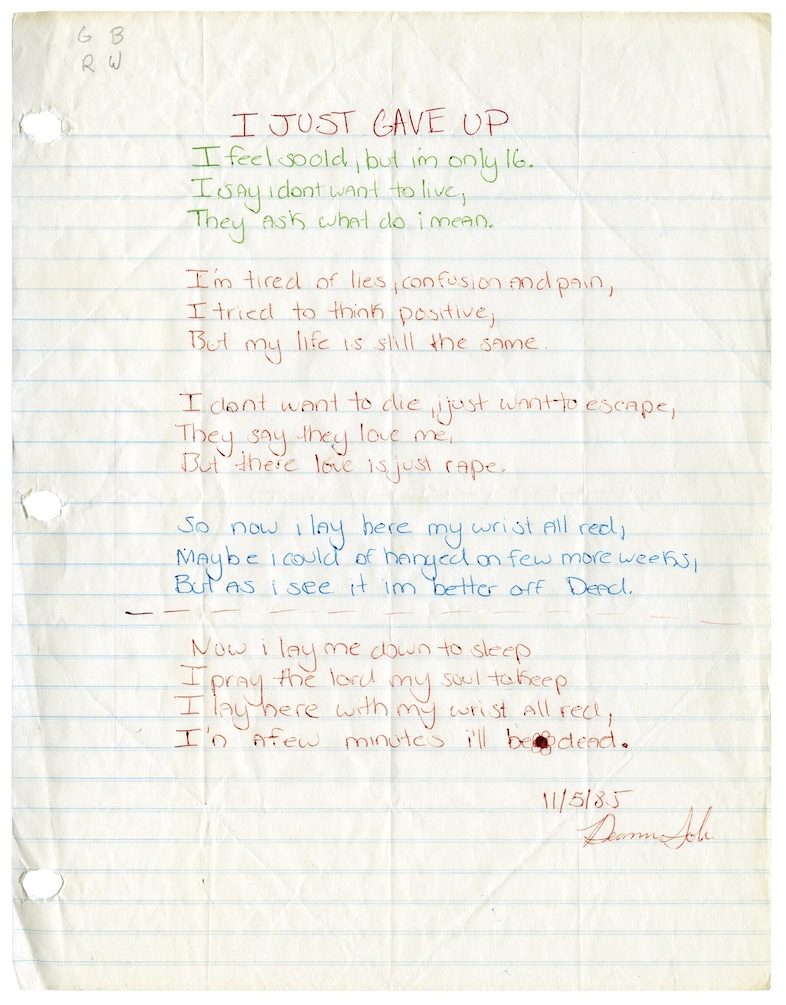 G B
R W
I JUST GAVE UP
I feel so old, but im only 16.
I say i dont want to live,
They ask what do i mean.
I'm tired of lies, confusion and pain,
I tried to think positive,
But my life is still the same.
I dont want to die, i just want to escape,
They say they love me,
But there love is just rape.
So now i lay here my wrist all red,
Maybe i could of hanged on few more weeks,
But as i see it im better off Dead.
Now i lay me down to sleep
I pray the lord my soul to keep
I lay here with my wrist all red,
I'n a few minutes i'll be dead.
11/5/85